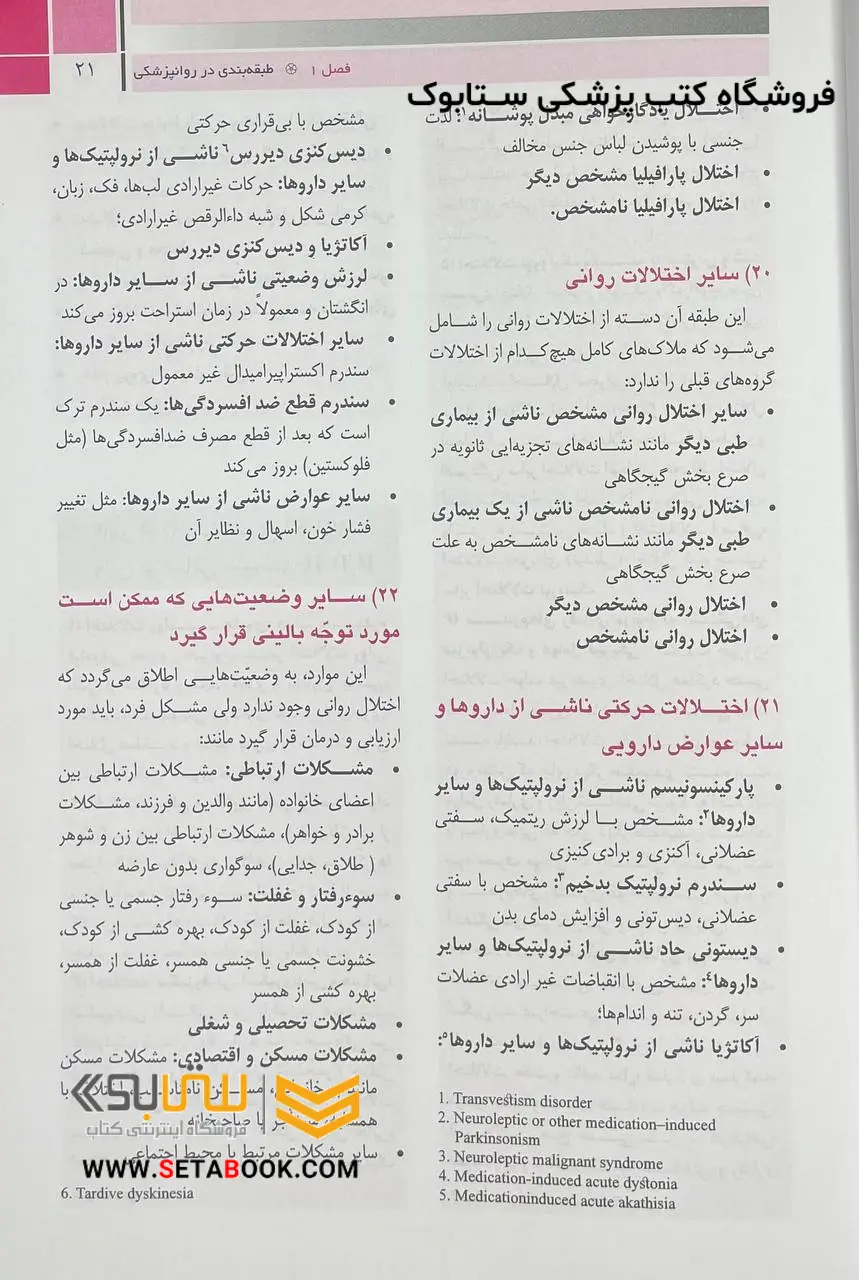 فصل ۱ طبقه‌بندی در روانپزشکی
۲۱
فروشگاه کتب پزشکی ستابوک
اختلال یادگارخواهی مبدل پوشانه۱: لذت
جنسی با پوشیدن لباس جنس مخالف
• اختلال پارافیلیا مشخص دیگر
• اختلال پارافیلیا نامشخص.
۲۰) سایر اختلالات روانی
این طبقه آن دسته از اختلالات روانی را شامل
می‌شود که ملاک‌های کامل هیچ‌کدام از اختلالات
گروه‌های قبلی را ندارد:
• سایر اختلال روانی مشخص ناشی از بیماری
طبی دیگر مانند نشانه‌های تجزیه‌ایی ثانویه در
صرع بخش گیجگاهی
• اختلال روانی نامشخص ناشی از یک بیماری
طبی دیگر مانند نشانه‌های نامشخص به علت
صرع بخش گیجگاهی
• اختلال روانی مشخص دیگر
• اختلال روانی نامشخص
۲۱) اختلالات حرکتی ناشی از داروها و
سایر عوارض دارویی
• پارکینسونیسم ناشی از نرولپتیک‌ها و سایر
داروها۲: مشخص با لرزش ریتمیک، سفتی
عضلانی، آکنزی و برادی‌کنیزی
• سندرم نرولپتیک بدخیم۳: مشخص با سفتی
عضلانی، دیس‌تونی و افزایش دمای بدن
• دیستونی حاد ناشی از نرولپتیک‌ها و سایر
داروها۴: مشخص با انقباضات غیر ارادی عضلات
سر، گردن، تنه و اندام‌ها؛
• آکاتژیا ناشی از نرولپتیک‌ها و سایر داروها۵:
1. Transvestism disorder
2. Neuroleptic or other medication–induced
Parkinsonism
3. Neuroleptic malignant syndrome
4. Medication-induced acute dystonia
5. Medicationinduced acute akathisia
مشخص با بی‌قراری حرکتی
• دیس‌کنزی دیررس۶ ناشی از نرولپتیک‌ها و
سایر داروها: حرکات غیرارادی لب‌ها، فک، زبان،
کرمی شکل و شبه داءالرقص غیرارادی؛
• آکاتژیا و دیس‌کنزی دیررس
• لرزش وضعیتی ناشی از سایر داروها: در
انگشتان و معمولاً در زمان استراحت بروز می‌کند
• سایر اختلالات حرکتی ناشی از سایر داروها:
سندرم اکستراپیرامیدال غیر معمول
• سندرم قطع ضد افسردگی‌ها: یک سندرم ترک
است که بعد از قطع مصرف ضدافسردگی‌ها (مثل
فلوکستین) بروز می‌کند
• سایر عوارض ناشی از سایر داروها: مثل تغییر
فشار خون، اسهال و نظایر آن
۲۲) سایر وضعیت‌هایی که ممکن است
مورد توجّه بالینی قرار گیرد
این موارد، به وضعیّت‌هایی اطلاق می‌گردد که
اختلال روانی وجود ندارد ولی مشکل فرد، باید مورد
ارزیابی و درمان قرار گیرد مانند:
• مشکلات ارتباطی: مشکلات ارتباطی بین
اعضای خانواده (مانند والدین و فرزند، مشکلات
برادر و خواهر)، مشکلات ارتباطی بین زن و شوهر
( طلاق، جدایی)، سوگواری بدون عارضه
• سوءرفتار و غفلت: سوء رفتار جسمی یا جنسی
از کودک، غفلت از کودک، بهره کشی از کودک،
خشونت جسمی یا جنسی همسر، غفلت از همسر،
بهره کشی از همسر
• مشکلات تحصیلی و شغلی
• مشکلات مسکن و اقتصادی: مشکلات مسکن
با صاحبخانه
• سایر مشکلات مرتبط با محیط اجتماعی
6. Tardive dyskinesia
ستابوک
فروشگاه اینترنتی کتاب
WWW.SETABOOK.COM